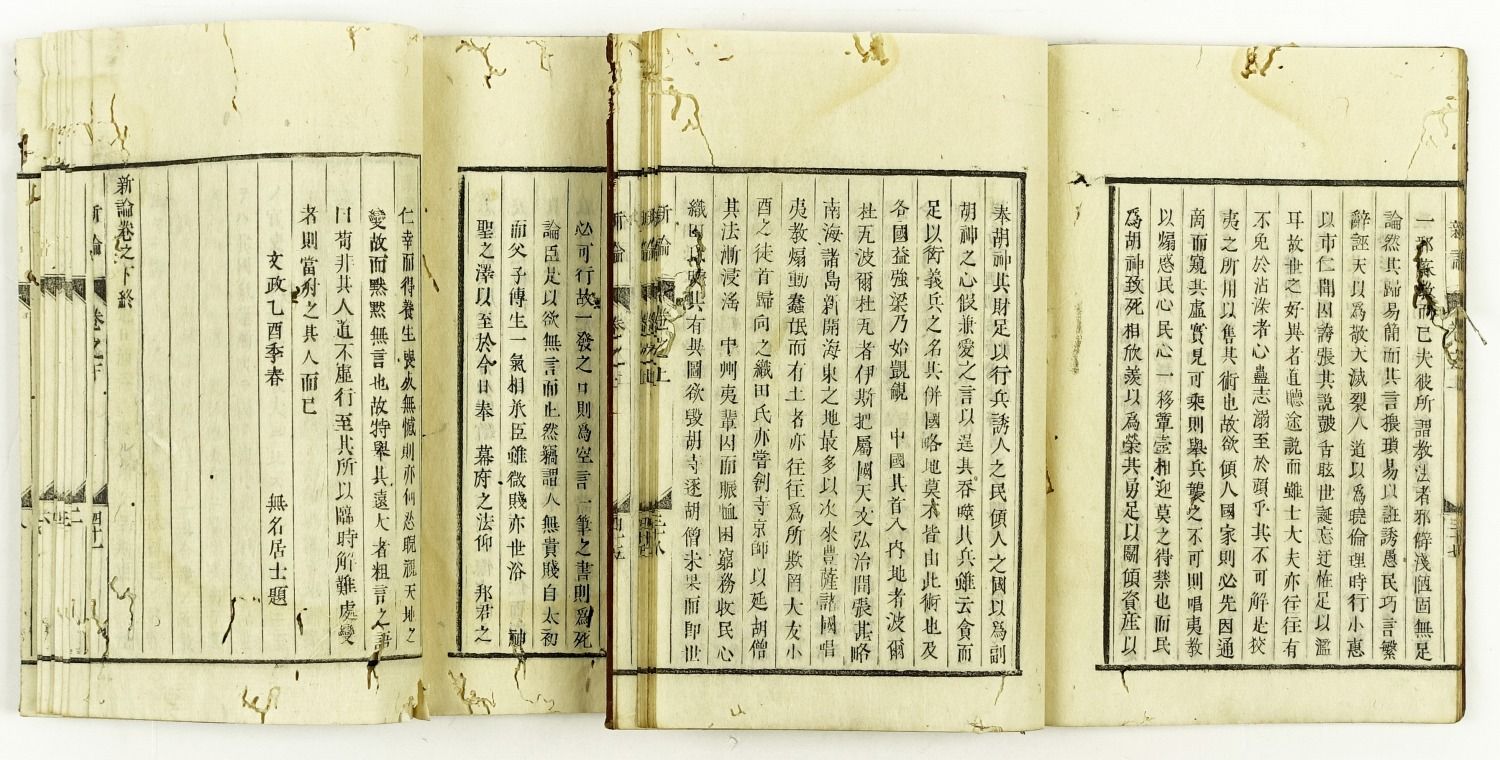 新論
一耶蘇教而已夫彼所謂教法者邪僻淺陋固無足
論然其歸易簡而其言猥瑣易以誑誘愚民巧言繁
辭誣天以爲敬天滅裂人道以爲曉倫理時行小惠
以市仁聞因誇張其說鼓舌眩世誕忘迂怪足以濫
耳故世之好異者道聽途說而雖士大夫亦往往有
不免於沾洙者心蠱志溺至於頑乎其不可解是狡
夷之所用以售其術也故欲傾人國家則必先因通
商而窺其虛實見可乘則舉兵襲之不可則唱夷教
以煽惑民心民心一移簞壺相迎莫之得禁也而民
爲胡神致死相欣羨以爲榮其勇足以鬭傾資產以
奉胡神其財足以行兵誘人之民傾人之國以爲副
胡神之心假兼愛之言以逞其吞噬其兵雖云貪而
足以衒義兵之名其併國略地莫不皆由此術也及
各國益強梁乃始覬覦　中國其首入內地者波爾
杜瓦波爾杜瓦者伊斯把屬國天文弘治間張甚略
南海諸島新開海東之地最多以次來豐薩諸國唱
夷教煽動蠢氓而有土者亦往往爲所欺罔大友小
酉之徒首歸向之織田氏亦嘗創寺京師以延胡僧
其法漸浸淫　中州夷輩因而賑恤困窮務收民心
織其有異圖欲毀胡寺逐胡僧未果而即世
新論　卷之上　三十八
新論　卷之上
必可行故一發之口則爲空言一筆之書則爲死
論臣尤以欲無言而止然竊謂人無貴賤自太初
而父子傳生一氣相承臣雖微賤亦世浴　神
聖之澤以至於今日奉　幕府之法仰　邦君之
仁幸而得養生喪死無憾則亦何忍睨視天地之
變故而黙黙無言也故特舉其遠大者粗言之語
曰苟非其人道不虛行至其所以臨時解難處變
者則當附之其人而已
文政乙酉季春　無名居士題
新論卷之下終
新論　卷之下　四十一